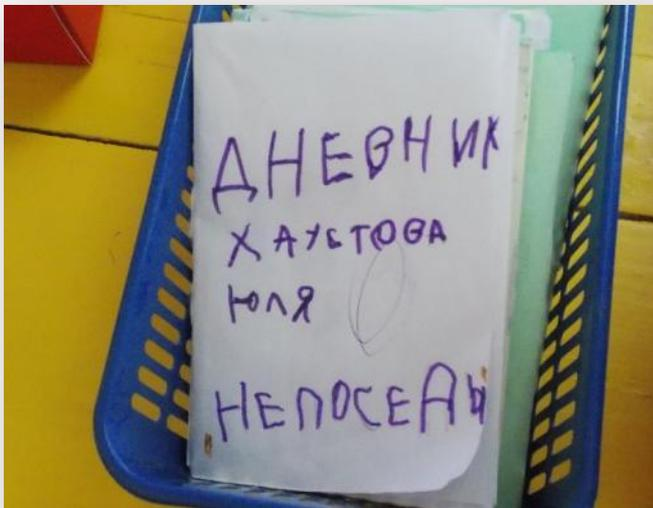 ДНЕВНИК
ХАУСТОВА
ЮЛЯ
НЕПОСЕДЫ